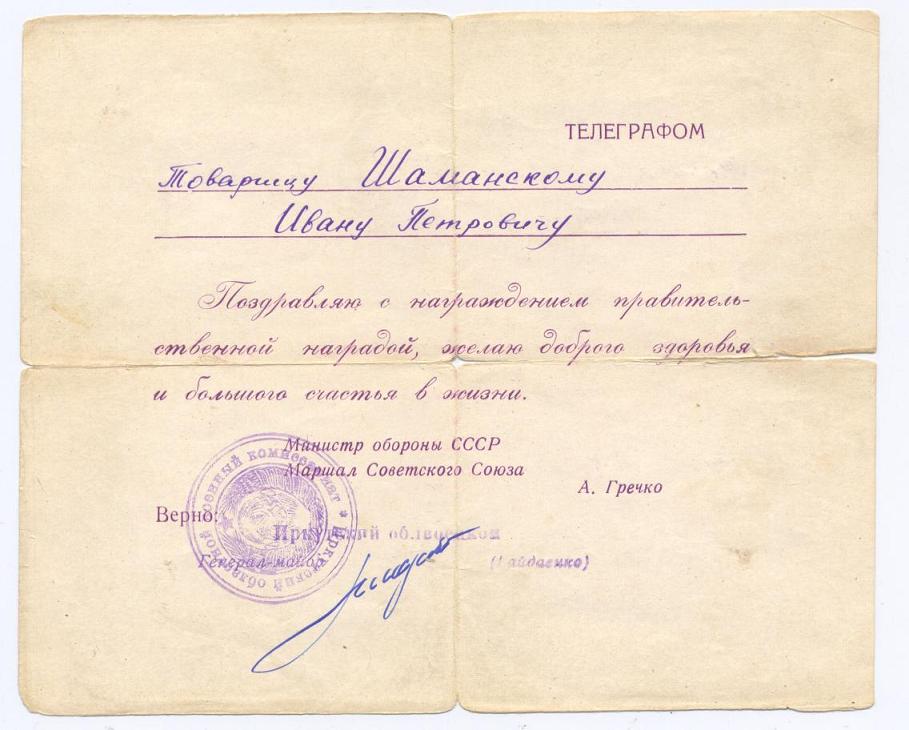 ТЕЛЕГРАФОМ
Товарищу Шаманскому
Ивану Петровичу
Поздравляю с награждением правитель-
ственной наградой, желаю доброго здоровья
и большого счастья в жизни.
Министр обороны СССР
Маршал Советского Союза
А. Гречко
Верно:
Иркутский облвоенком
Генерал-майор
(Гайдаенко)
Иркутский областной военный комиссариат